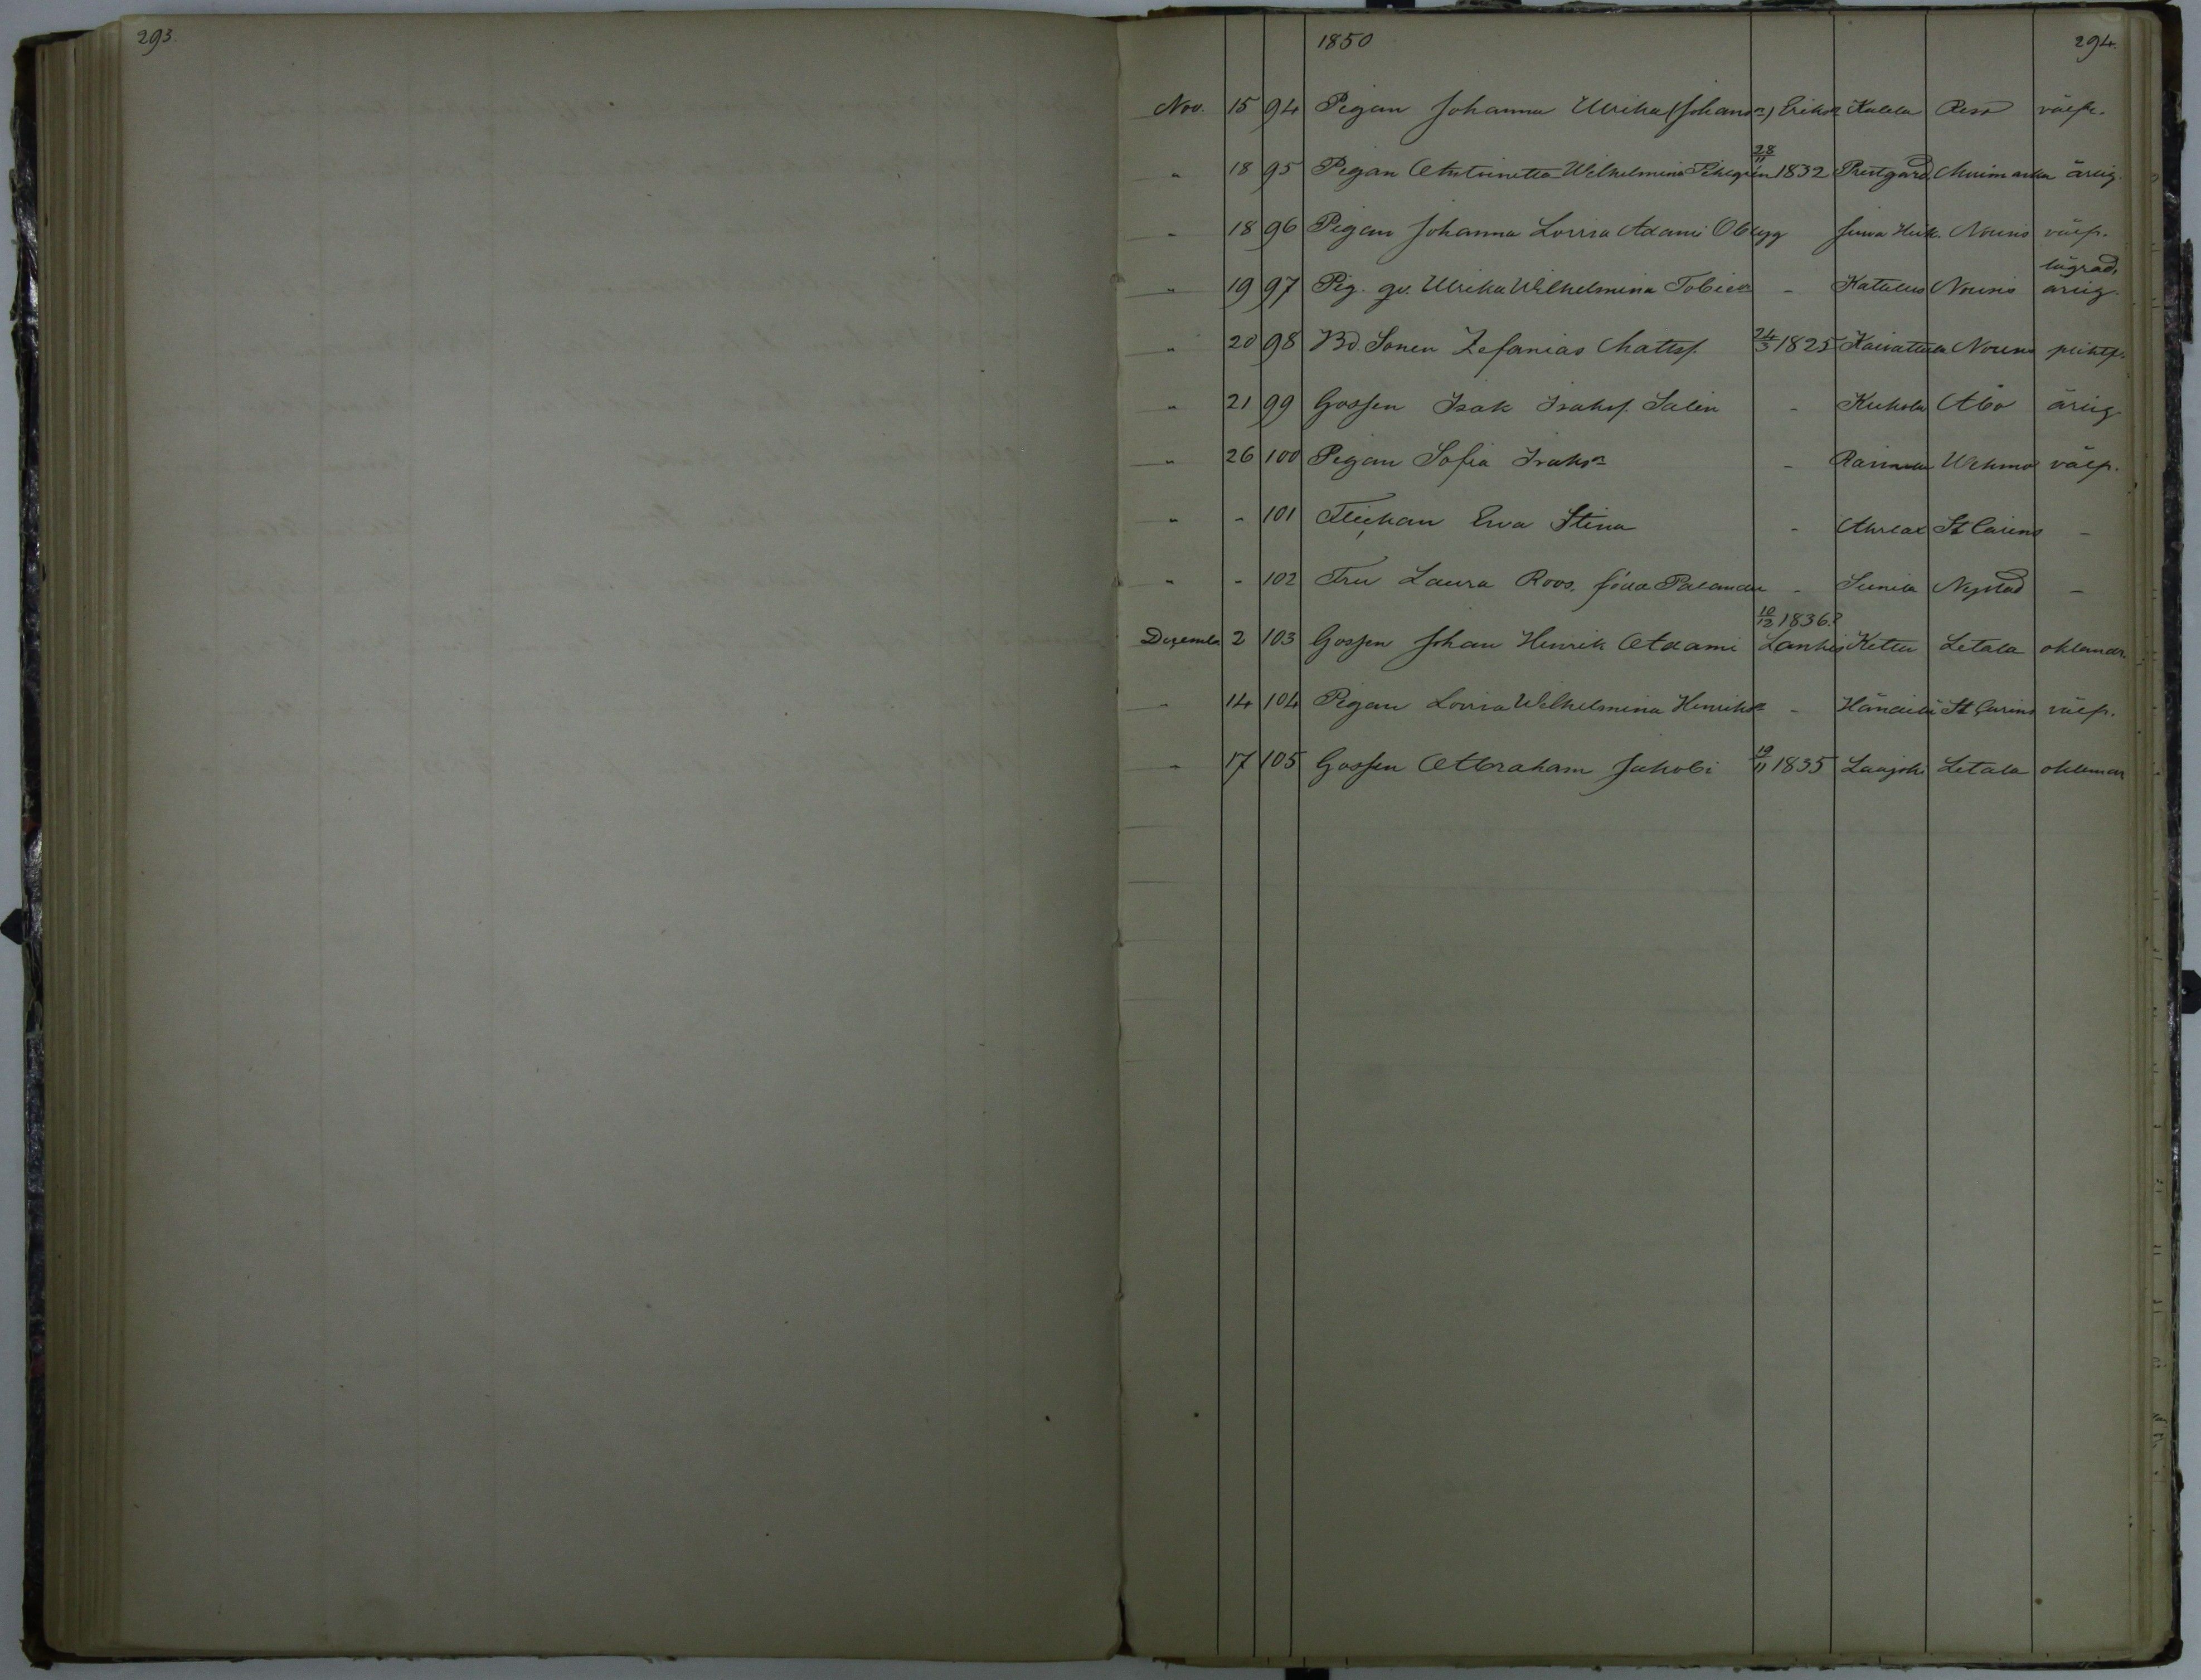 293.
1850 294.
Nov. 15 94 Pigan Johanna Ulrika (Johansn) Eriksn Kalela Reso välfr.
" 18 95 Pigan Antoinetta Wilhelmina Pihlgrén 28/11 1832 Prestgård Muimaska ärlig.
" 18 96 Pigan Johanna Lovisa Adami Oblyg Juva Heik. Nouns välfr.
lägrad,
" 19 97 Pig. qv. Ulrika Wilhelmina Tobiedr - Katelus Nouns ärlig.
" 20 98 Bd. Sonen Zefanias Mattsf. 24/3 1825 Kaivattula Nouns
" 21 99 Gossen Isak Isaksf. Salin - Kukola Åbo ärlig
" 26 100 Pigan Sofia Isaksn - Raimela Wehmo välfr.
" - 101 Flickan Eva Stina - St Carins -
" - 102 Fru Laura Roos, föda Palander - Sunila Nystad -
10/12 1836?
Decemb. 2 103 Gossen Johan Henrik Adami Lankis Kettu Letala oklandr.
" 14 104 Pigan Lovisa Wilhelmina Henriksn - St Carins välfr.
" 17 105 Gossen Abraham Jakobi 19/11 1835 Laajoki Letala oklandr